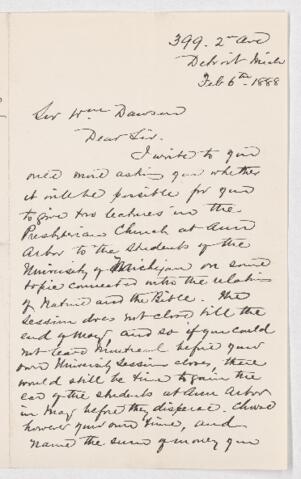 399. 2nd Ave
Detroit Mich
Feb 6th 1888
Sir Wm Dawson
Dear Sir.
I write to you
once more asking you whether
it will be possible for you
to give two lectures in the
Presbyterian Church at Ann
Arbor to the students of the
University of Michigan on some
topic connected with the relation
of Nature and the Bible. The
session does not close till the
end of May, and so if you could
not leave Montreal before your
own University session closes, there
would still be time to gain the
ear of the students at Ann Arbor
in May before they disperse. Choose
however your own time, and
name the sum of money you